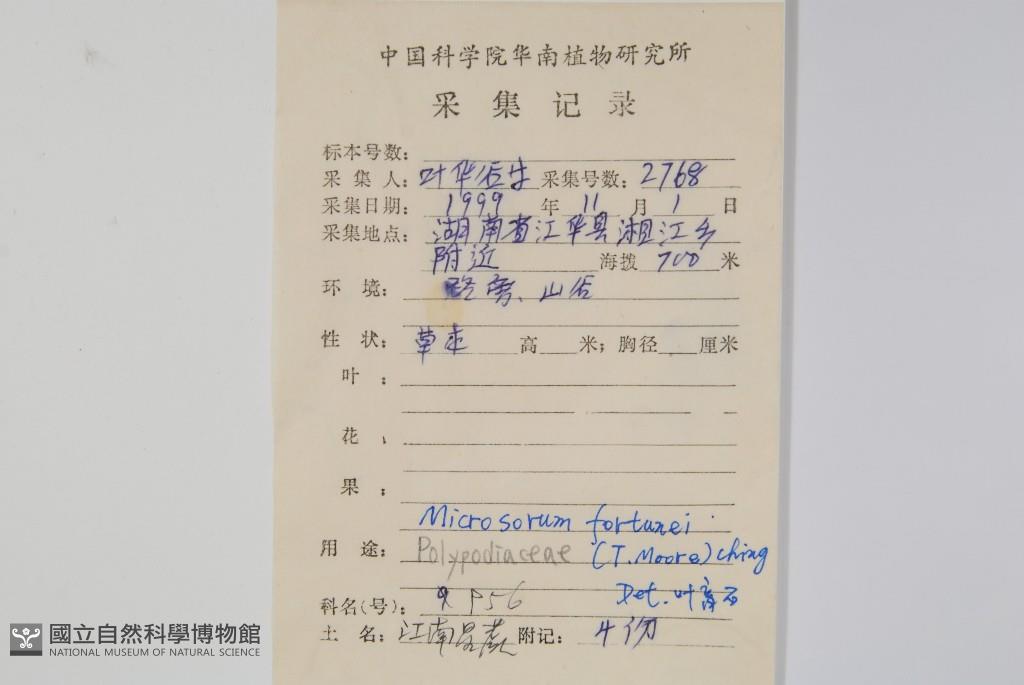 中国科学院华南植物研究所
采集记录
标本号数：
采集人：叶华谷 采集号数：2768
采集日期：1999年11月1日
采集地点：湖南省江华县湘江乡
附近 海拨 700 米
环境：路旁、山谷
性状：草本 高 米；胸径 厘米
叶：
花：
果：
Microsorum fortunei
用途：Polypodiaceae (T. Moore) Ching
科名(号)： P56 Det. 叶育石
土名：江南星蕨 附记：4份
國立自然科學博物館
NATIONAL MUSEUM OF NATURAL SCIENCE